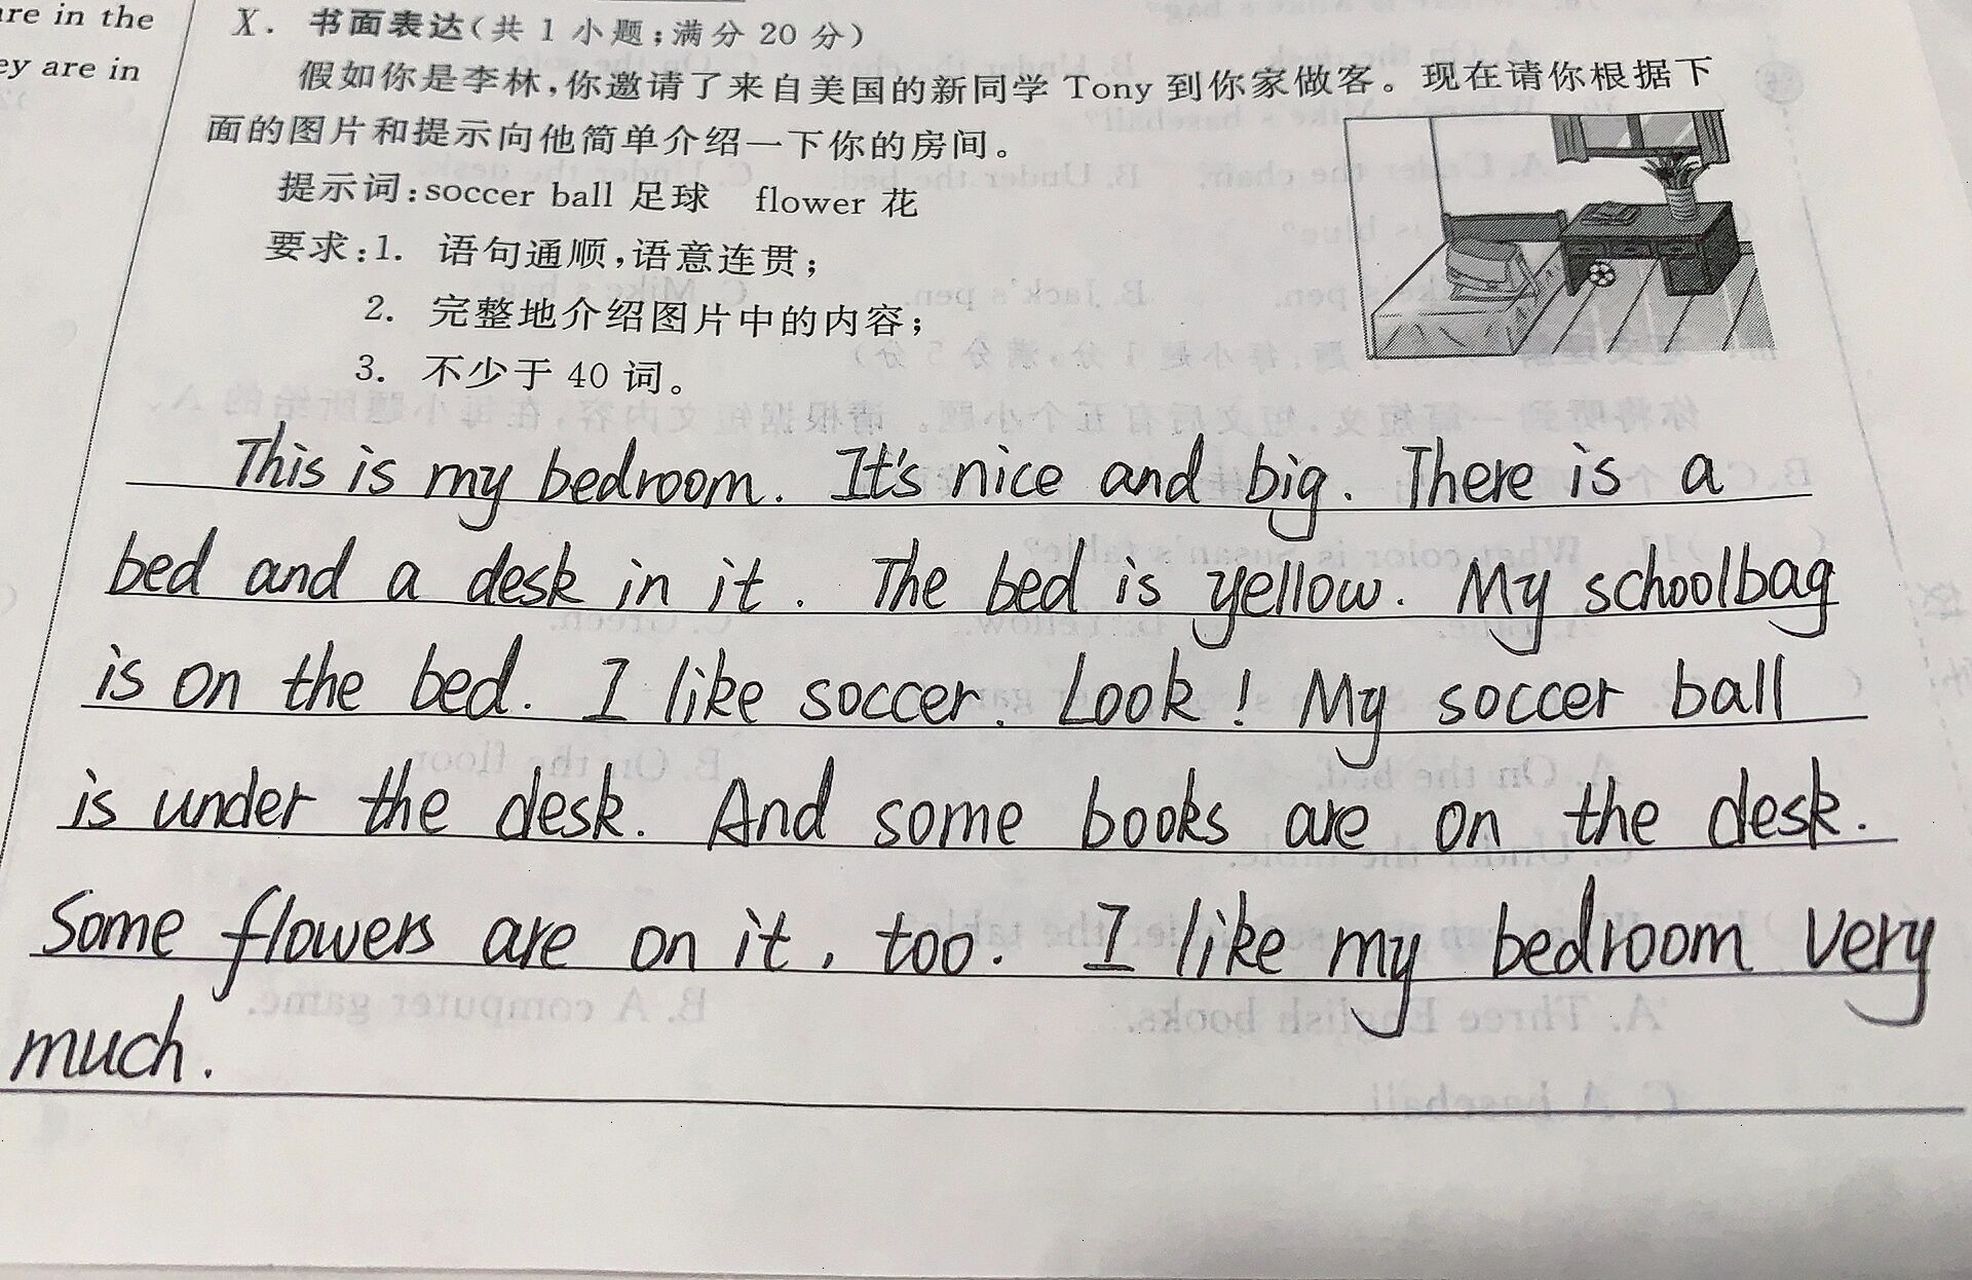 are in the
ey are in
X. 书面表达(共 1 小题;满分 20 分)
假如你是李林,你邀请了来自美国的新同学 Tony 到你家做客。现在请你根据下
面的图片和提示向他简单介绍一下你的房间。
提示词:soccer ball 足球 flower 花
要求:1. 语句通顺,语意连贯;
2. 完整地介绍图片中的内容;
3. 不少于 40 词。
This is my bedroom. It's nice and big. There is a
bed and a desk in it. The bed is yellow. My schoolbag
is on the bed. I like soccer. Look! My soccer ball
is under the desk. And some books are on the desk.
Some flowers are on it, too. I like my bedroom very
much.